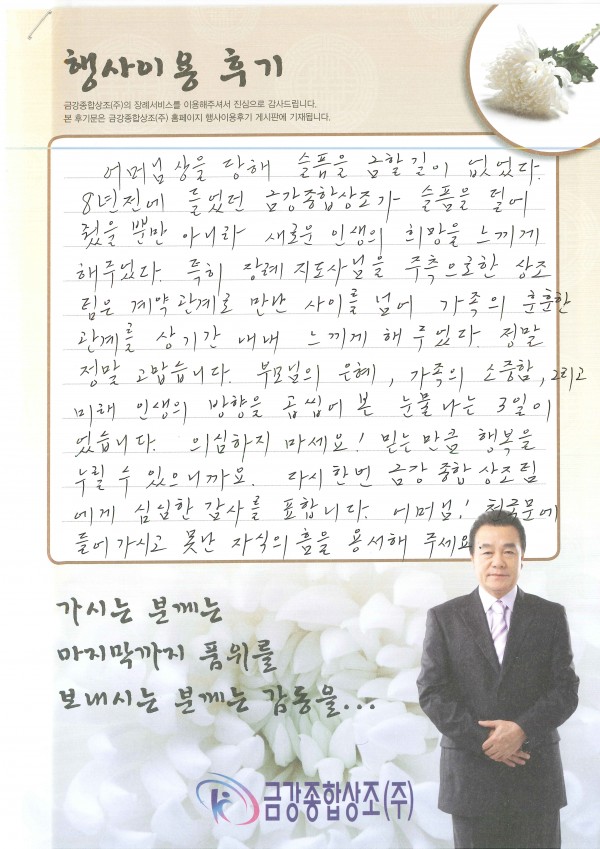 행사이용 후기
금강종합상조(주)의 장례서비스를 이용해주셔서 진심으로 감사드립니다.
본 후기문은 금강종합상조(주) 홈페이지 행사이용후기 게시판에 기재됩니다.
어머님상을 당해 슬픔을 금할길이 없었다.
8년전에 들었던 금강종합상조가 슬픔을 덜어
줬을 뿐만 아니라 새로운 인생의 희망을 느끼게
해주었다. 특히 장례지도사님을 주축으로한 상조
팀은 계약관계로 만난 사이를 넘어 가족의 훈훈한
관계를 상기간 내내 느끼게 해 주었다. 정말
정말 고맙습니다. 부모님의 은혜, 가족의 소중함, 그리고
미래 인생의 방향을 곱씹어 본 눈물나는 3일이
었습니다. 의심하지 마세요! 믿는만큼 행복을
누릴 수 있으니까요. 다시한번 금강종합상조팀
에게 심심한 감사를 표합니다. 어머님! 천국문에
들어가시고 못난 자식의 흠을 용서해 주세요.
가시는 분께는
마지막까지 품위를
보내시는 분께는 감동을...
금강종합상조(주)